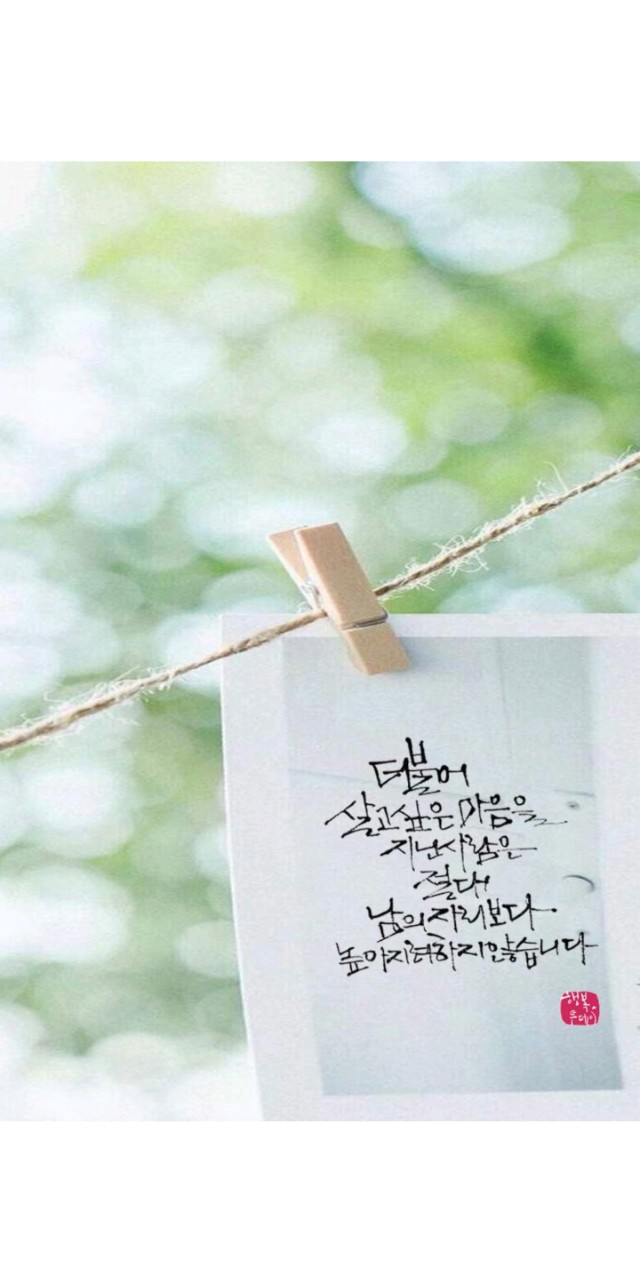 더불어
살고싶은 마음을
지난사람은
절대
남의 자리보다
높아지려하지않습니다
행복
투데이